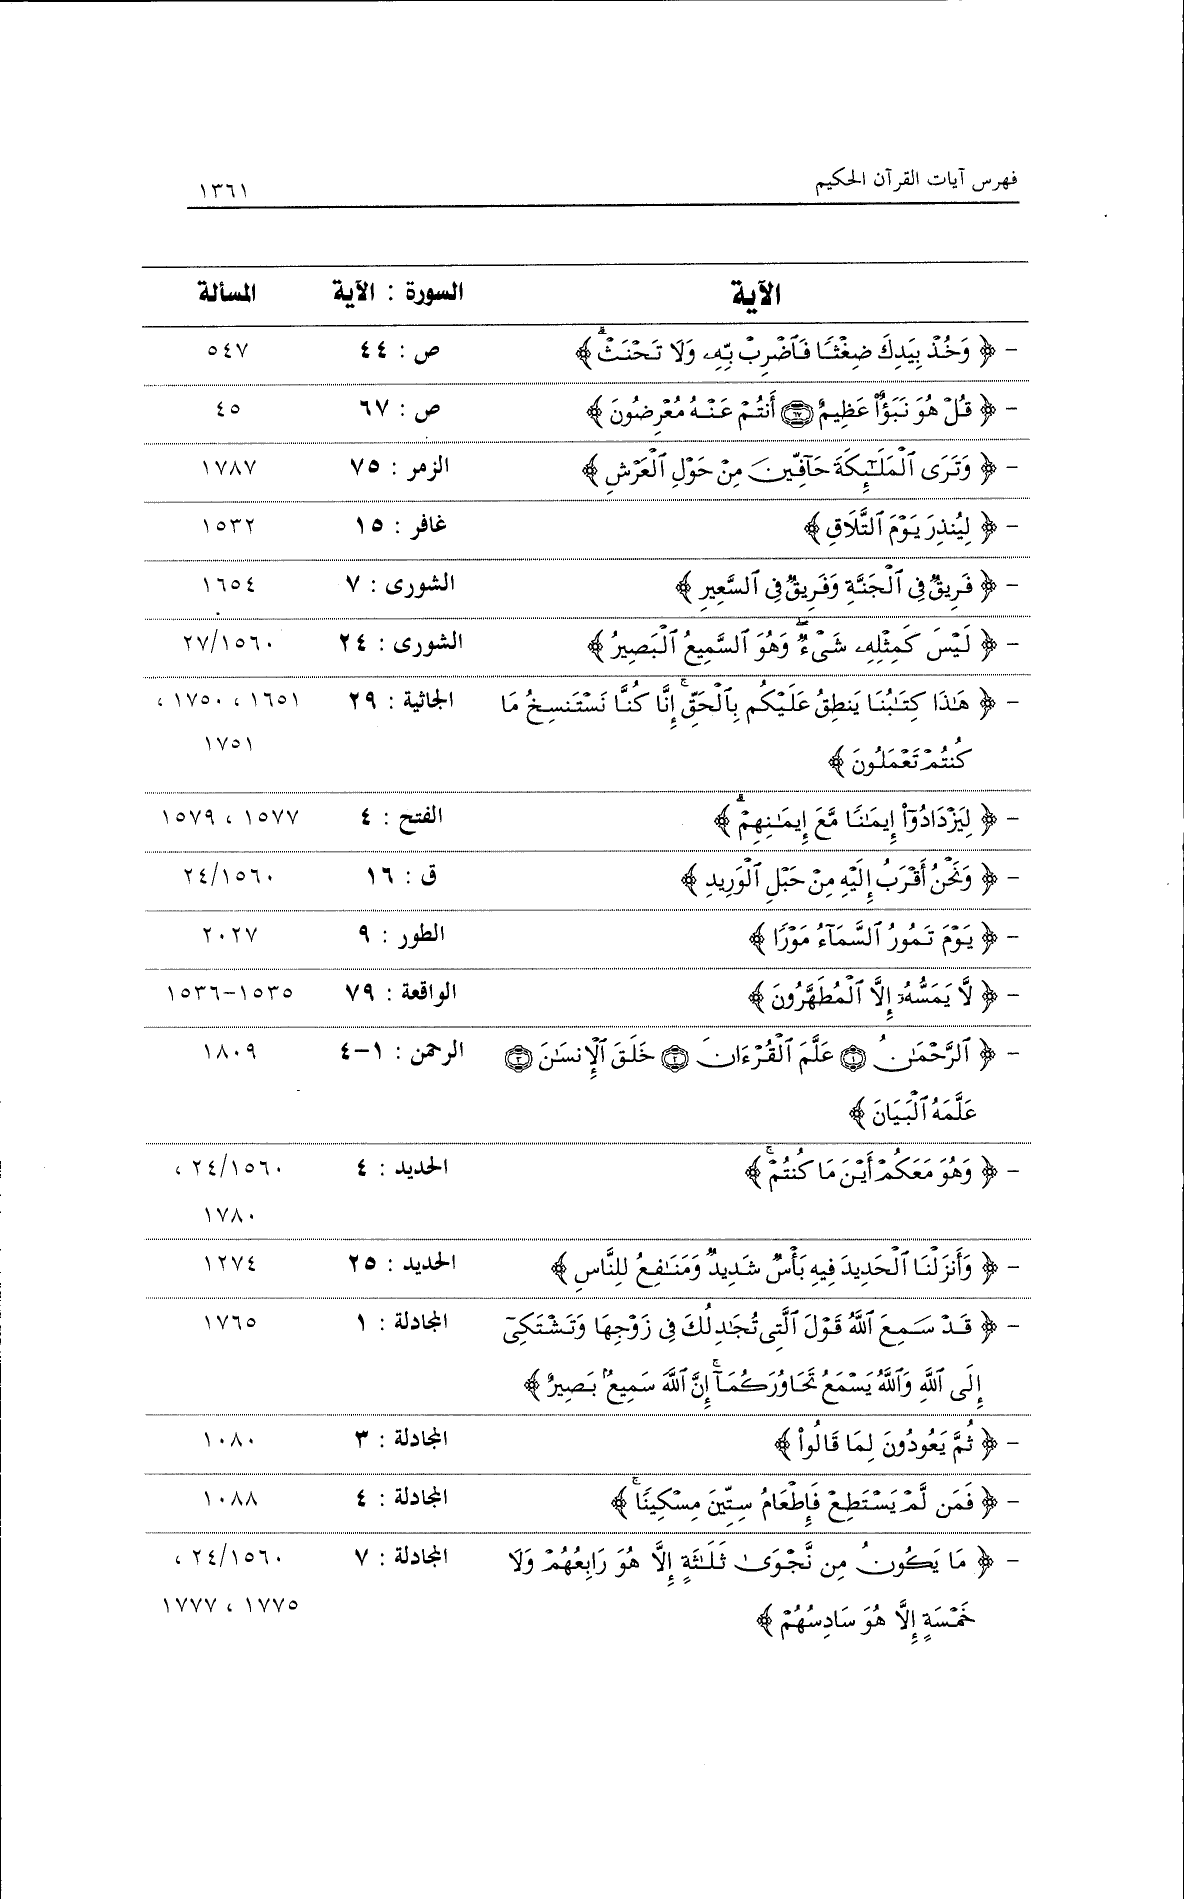 فهرس آيات القرآن الحكيم ١٣٦١
الآية السورة : الآية المسألة
- ﴿ وَخُذْ بِيَدِكَ ضِغْثًا فَاضْرِبْ بِهِ وَلَا تَحْنَثْ ﴾ ص : ٤٤ ٥٤٧
- ﴿ قُلْ هُوَ نَبَؤٌا عَظِيمٌ ٦٧ أَنتُمْ عَنْهُ مُعْرِضُونَ ﴾ ص : ٦٧ ٤٥
- ﴿ وَتَرَى ٱلْمَلَـٰٓئِكَةَ حَآفِّينَ مِنْ حَوْلِ ٱلْعَرْشِ ﴾ الزمر : ٧٥ ١٧٨٧
- ﴿ لِيُنذِرَ يَوْمَ ٱلتَّلَاقِ ﴾ غافر : ١٥ ١٥٣٢
- ﴿ فَرِيقٌ فِى ٱلْجَنَّةِ وَفَرِيقٌ فِى ٱلسَّعِيرِ ﴾ الشورى : ٧ ١٦٥٤
- ﴿ لَيْسَ كَمِثْلِهِۦ شَىْءٌ ۖ وَهُوَ ٱلسَّمِيعُ ٱلْبَصِيرُ ﴾ الشورى : ٢٤ ٢٧/١٥٦٠
- ﴿ هَـٰذَا كِتَـٰبُنَا يَنطِقُ عَلَيْكُم بِٱلْحَقِّ ۚ إِنَّا كُنَّا نَسْتَنسِخُ مَا الجاثية : ٢٩ ١٦٥١ ، ١٧٥٠ ،
كُنتُمْ تَعْمَلُونَ ﴾ ١٧٥١
- ﴿ لِيَزْدَادُوٓا۟ إِيمَـٰنًا مَّعَ إِيمَـٰنِهِمْ ۗ ﴾ الفتح : ٤ ١٥٧٧ ، ١٥٧٩
- ﴿ وَنَحْنُ أَقْرَبُ إِلَيْهِ مِنْ حَبْلِ ٱلْوَرِيدِ ﴾ ق : ١٦ ٢٤/١٥٦٠
- ﴿ يَوْمَ تَمُورُ ٱلسَّمَآءُ مَوْرًا ﴾ الطور : ٩ ٢٠٢٧
- ﴿ لَّا يَمَسُّهُۥٓ إِلَّا ٱلْمُطَهَّرُونَ ﴾ الواقعة : ٧٩ ١٥٣٥-١٥٣٦
- ﴿ ٱلرَّحْمَـٰنُ ١ عَلَّمَ ٱلْقُرْءَانَ ٢ خَلَقَ ٱلْإِنسَـٰنَ ٣ الرحمن : ١-٤ ١٨٠٩
عَلَّمَهُ ٱلْبَيَانَ ﴾
- ﴿ وَهُوَ مَعَكُمْ أَيْنَ مَا كُنتُمْ ۚ ﴾ الحديد : ٤ ٢٤/١٥٦٠ ،
١٧٨٠
- ﴿ وَأَنزَلْنَا ٱلْحَدِيدَ فِيهِ بَأْسٌ شَدِيدٌ وَمَنَـٰفِعُ لِلنَّاسِ ﴾ الحديد : ٢٥ ١٢٧٤
- ﴿ قَدْ سَمِعَ ٱللَّهُ قَوْلَ ٱلَّتِى تُجَـٰدِلُكَ فِى زَوْجِهَا وَتَشْتَكِىٓ المجادلة : ١ ١٧٦٥
إِلَى ٱللَّهِ وَٱللَّهُ يَسْمَعُ تَحَاوُرَكُمَآ ۚ إِنَّ ٱللَّهَ سَمِيعٌۢ بَصِيرٌ ﴾
- ﴿ ثُمَّ يَعُودُونَ لِمَا قَالُوا۟ ﴾ المجادلة : ٣ ١٠٨٠
- ﴿ فَمَن لَّمْ يَسْتَطِعْ فَإِطْعَامُ سِتِّينَ مِسْكِينًا ۚ ﴾ المجادلة : ٤ ١٠٨٨
- ﴿ مَا يَكُونُ مِن نَّجْوَىٰ ثَلَـٰثَةٍ إِلَّا هُوَ رَابِعُهُمْ وَلَا المجادلة : ٧ ٢٤/١٥٦٠ ،
خَمْسَةٍ إِلَّا هُوَ سَادِسُهُمْ ﴾ ١٧٧٥ ، ١٧٧٧